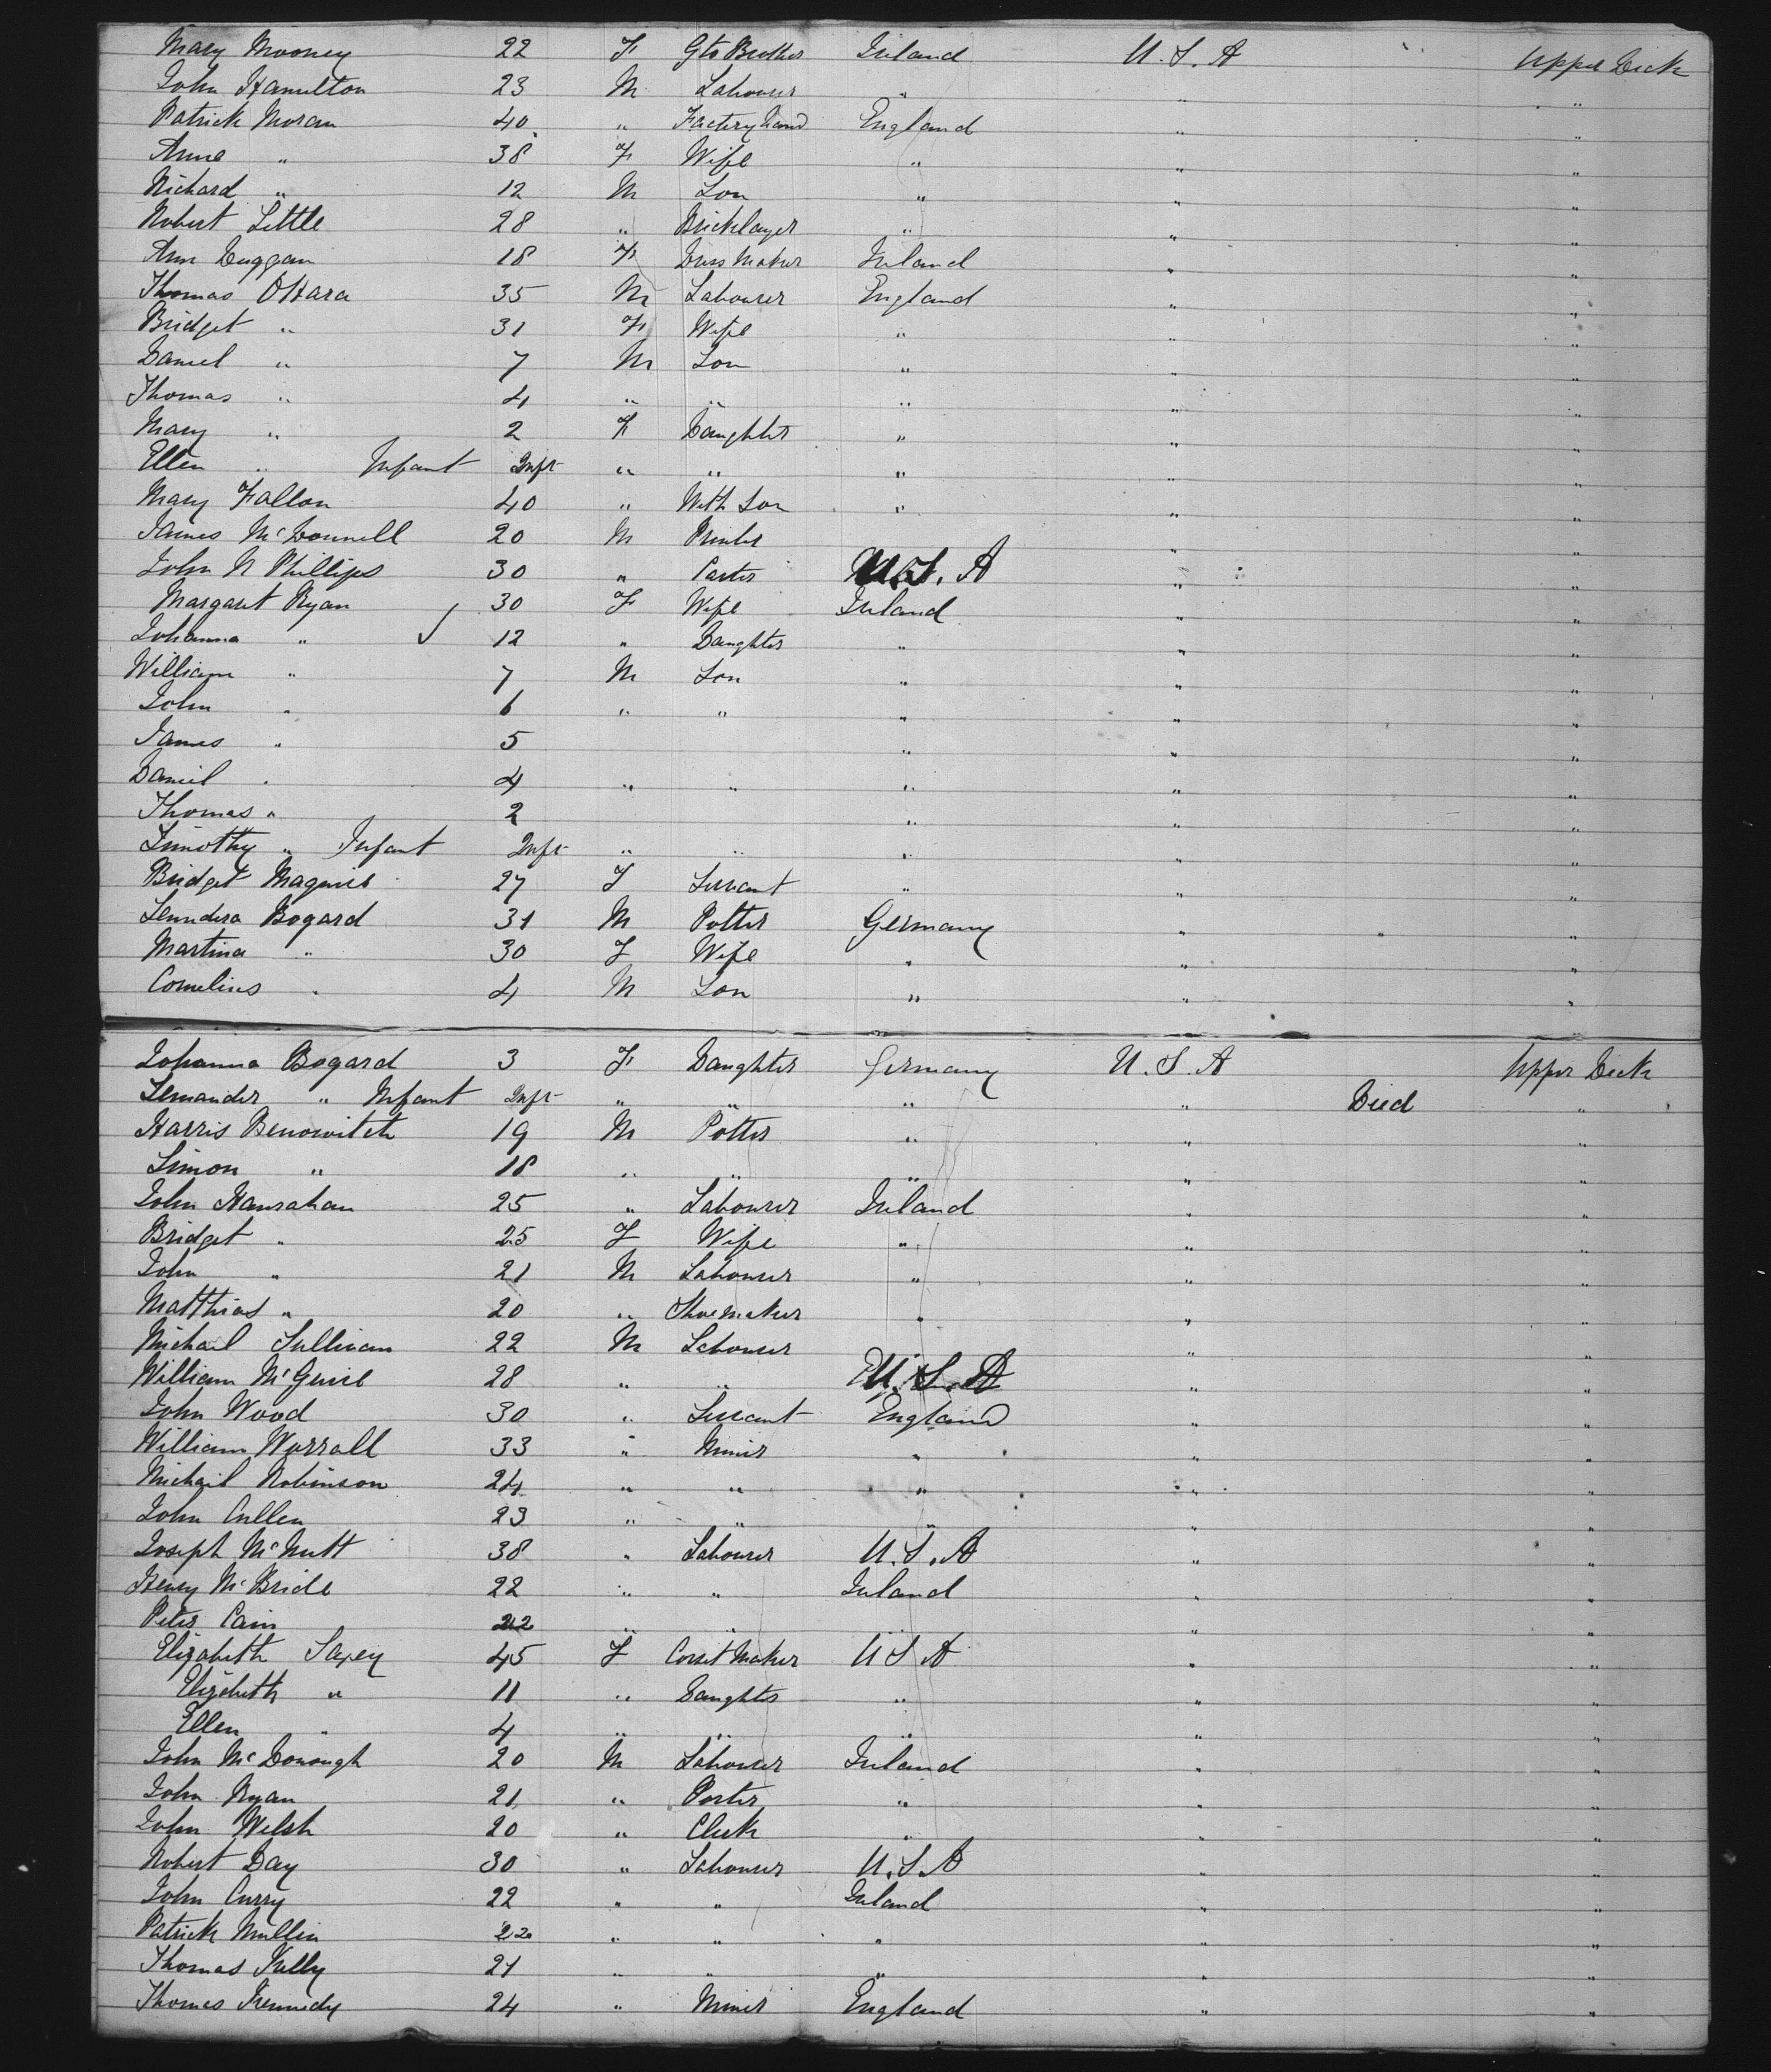 Mary Mooney 22 F Gto Brother Ireland U.S.A Upper Deck
John Hamilton 23 M Labourer " " "
Patrick Moran 40 " Factory hand England " "
Anne " 38 F Wife " " "
Richard " 12 M Son " " "
Robert Little 28 " Bricklayer " " "
Ann Duggan 18 F Dress Maker Ireland " "
Thomas O'Hara 35 M Labourer England " "
Bridget " 31 F Wife " " "
Daniel " 7 M Son " " "
Thomas " 4 " " " " "
Mary " 2 F Daughter " " "
Ellen " Infant Inft " " " " "
Mary Fallon 40 " With Son " " "
James McDonnell 20 M Printer " "
John N Phillips 30 " U.S.A " "
Margaret Ryan 30 F Wife Ireland " "
Johanna " 12 " Daughter " " "
William " 7 M Son " " "
John " 6 " " " " "
James " 5 " " "
Daniel " 4 " " " " "
Thomas " 2 " " "
Timothy " Infant Inft " " " " "
Bridget Maguire 27 F Servant " " "
Bogard 31 M Potter Germany " "
Martina " 30 F Wife " " "
Cornelius " 4 M Son " " "
Johanna Bogard 3 F Daughter Germany U.S.A Upper Deck
" Infant Inft " " " " Died "
Harris Benowitch 19 M Potter " " "
Simon " 18 " " " " "
John Hanrahan 25 " Labourer Ireland " "
Bridget " 25 F Wife " " "
John " 21 M Labourer " " "
Matthias " 20 " Shoemaker " " "
Michael Sullivan 22 M Labourer " "
William McGuire 28 " " U.S.A " "
John Wood 30 " Servant England " "
William Worrall 33 " Miner " " "
Michael Robinson 24 " " " " "
John Cullen 23 " " " " "
Joseph McNutt 38 " Labourer U.S.A " "
Henry McBride 22 " " Ireland " "
Peter Cain 22 " " " " "
Elizabeth Saxey 45 F Corset Maker U S A " "
Elizabeth " 11 " Daughter " " "
Ellen " 4 " " " " "
John McDonough 20 M Labourer Ireland " "
John Ryan 21 " Porter " " "
John Welsh 20 " Clerk " " "
Robert Day 30 " Labourer U.S.A " "
John Curry 22 " " Ireland " "
Patrick Mullin 22 " " " " "
Thomas Kelly 21 " " " " "
Thomas Kennedy 24 " Miner England " "